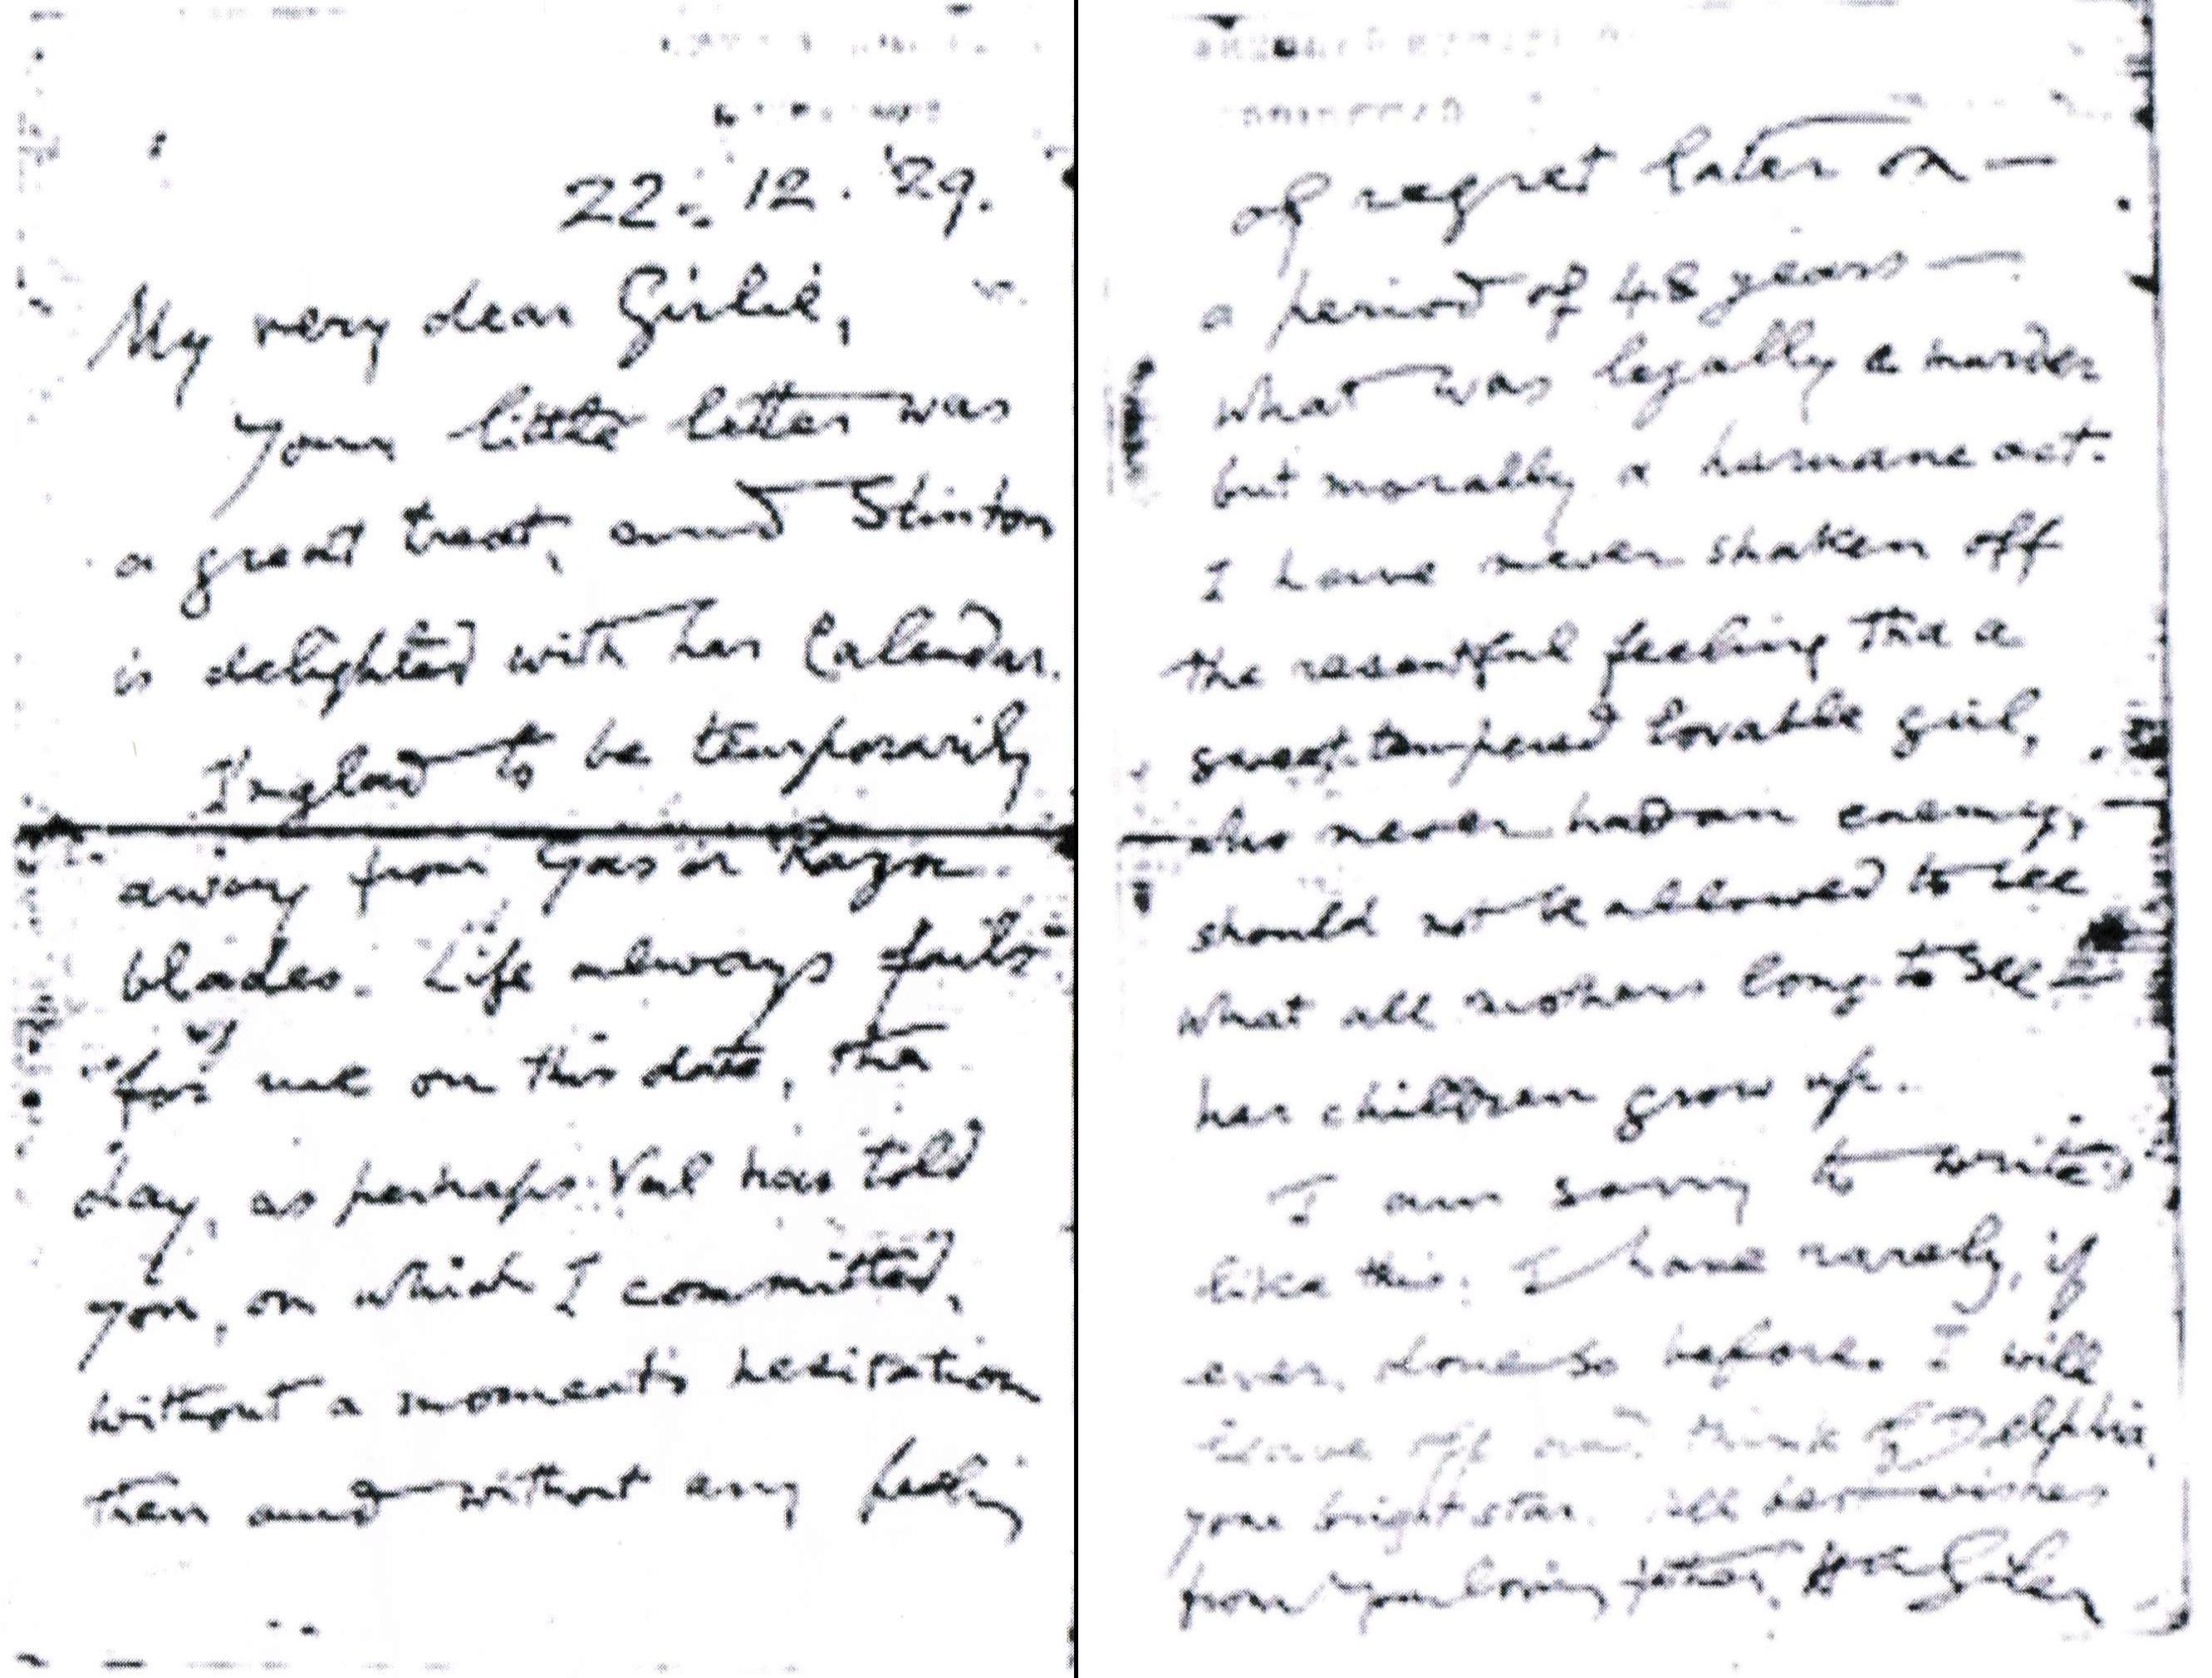 22. 12. '29.
My very dear Girlie,
Your little letter was
a great treat, and Stinton
is delighted with her Calendar.
I'm glad to be temporarily
away from Gas or Razor
blades. Life always
for me on this date, the
day, as perhaps Val has told
you, on which I committed,
without a moment's hesitation
then and without any feeling
of regret later on —
a period of 48 years —
what was legally a murder
but morally a humane act.
I have never shaken off
the resentful feeling tha a
sweet-tempered lovable girl,
who never had an enemy,
should not be allowed to see
what all mothers long to see —
her children grow up.
I am sorry to write
like this. I have rarely, if
ever, done so before. I will
leave off and think of Delphia,
your bright star. All best wishes
from your loving father,